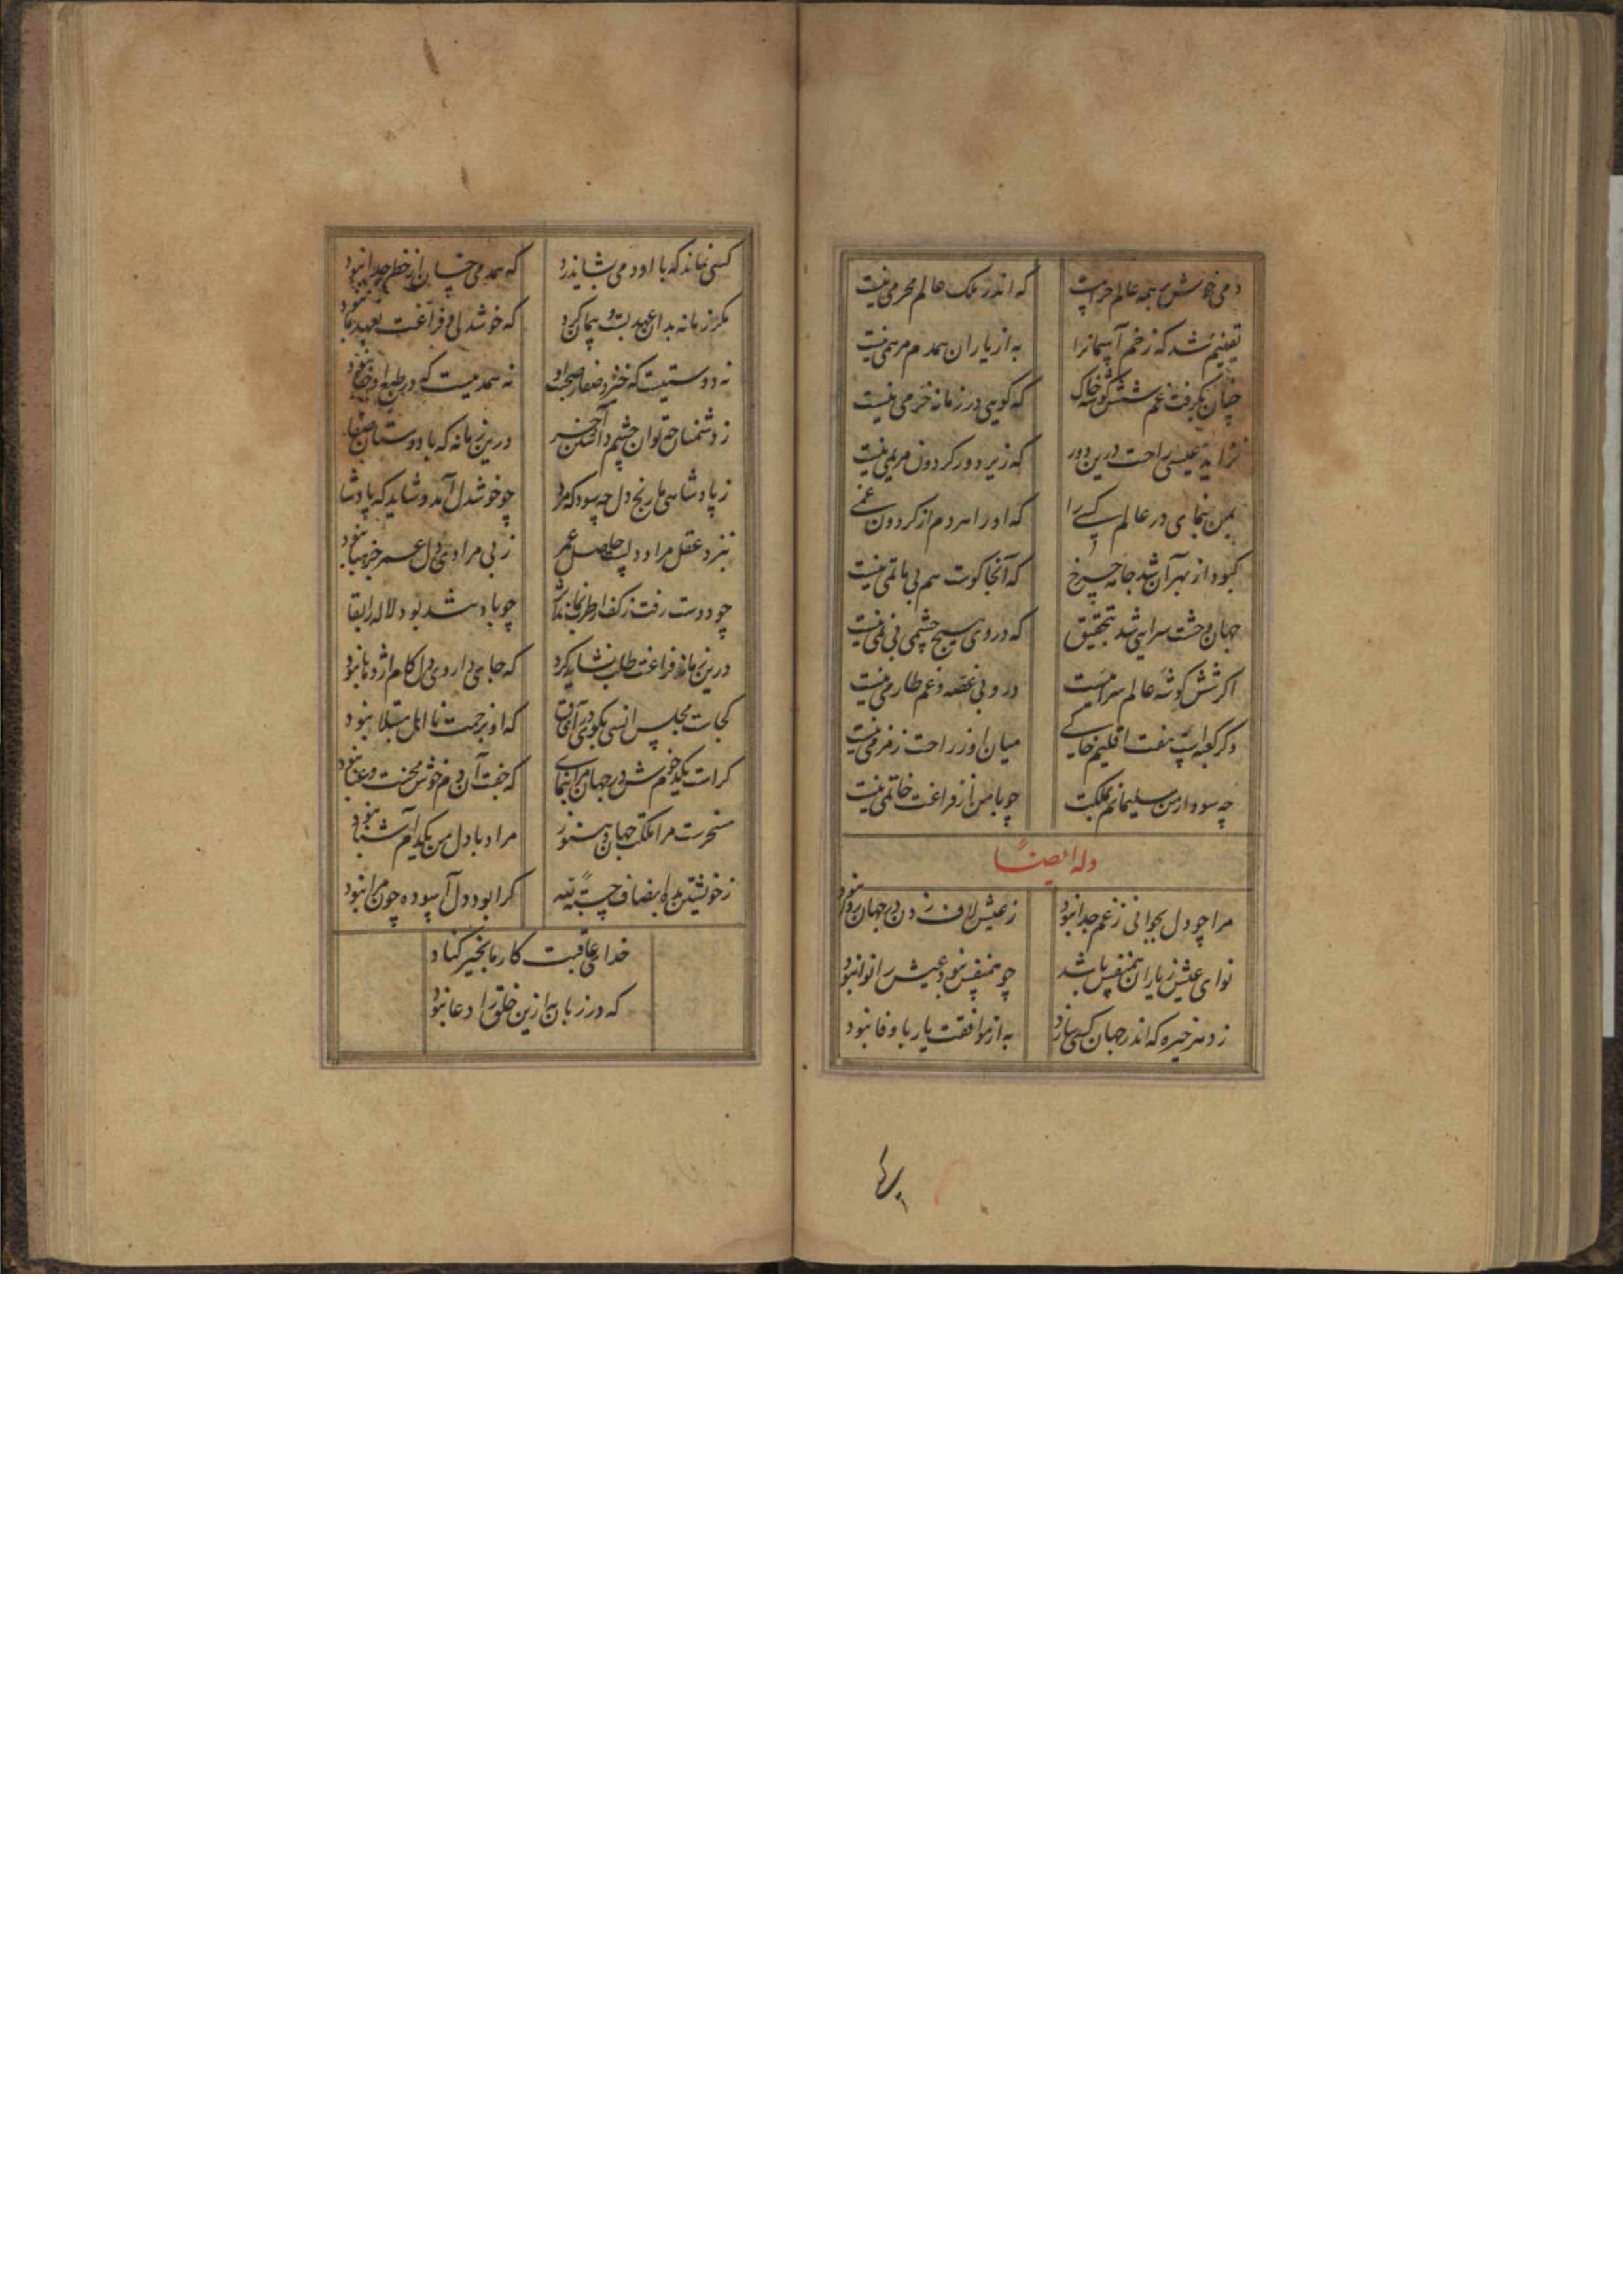 دمی خوش بر همه عالم حرامست
که اندر ملک عالم محرمی نیست
یقینم شد که زخم آسمانرا
به از یاران همدم مرهمی نیست
چنان بگرفت غم شش گوشه خاک
که کویی در زمانه خرمی نیست
نزاید عیسی راحت درین دور
که زیر دور کردون مریمی نیست
بمن بنمای در عالم کسی را
که او را هر دم از کردون غمی
کبود از بهر آن شد جامه چرخ
که آنجا کوست هم بی ماتمی نیست
جهان وحشت سرایی شد بتحقیق
که در وی هیچ چشمی بی نمی نیست
اکر شش کوشه عالم سراییست
درو بی غصه و غم طارمی نیست
وکر کعبه است هفت اقلیم خاکی
میان او ز راحت زمزمی نیست
چه سود ار من سلیمانم بملکت
چو با من از فراغت خاتمی نیست
وله ایضاً
مرا چو دل بجوانی ز غم جدا نبود
ز عیش لاف زدن در جهان روا نبود
نوای عیش ز یاران همنفس باشد
چو همنفس نبود عیش را نوا نبود
ز هر ذخیره که اندر جهان کسی سازد
به از موافقت یار با وفا نبود
کسی نماند که با او دمی بشاید زد
که همدمی چنان از خطر جدا نبود
مکر زمانه بدان عهد بست و پیمان کرد
که خوشدلی و فراغت بعهد ما نبود
نه دوستیست که خیزد صفا ز صحبت او
نه همدمیست که در طبع او جفا نبود
ز دشمنان چه توان چشم داشتن آخر
درین زمانه که با دوستان صفا
ز پادشاهی ما رنج دل چه سود که مرد
چو خوشدل آمد و شاید که پادشا
بنزد عقل مراد دلست حاصل عمر
ز بی مرادی دل عمر جز هبا نبود
چو دوست رفت ز کف از طرب نماند اثر
چو باد شد بود لاله را بقا
درین زمانه فراغت طلب نشاید کرد
که جای داروی دل کام اژدها نبود
کجاست مجلس انسی بکوی در آفاق
که او بزحمت نا اهل مبتلا نبود
کراست یکدم خوش در جهان مرا بنمای
که جفت آن دم خوش محنت و عنا نبود
مسخرست مرا ملکت جهان و هنوز
مراد با دل من یکدم آشنا نبود
ز خویشتن بده انصاف حسبة لله
کرا بود دل آسوده چون مرا نبود
خدای عاقبت کار ما بخیر کناد
که در زبان به ازین خلق را دعا نبود